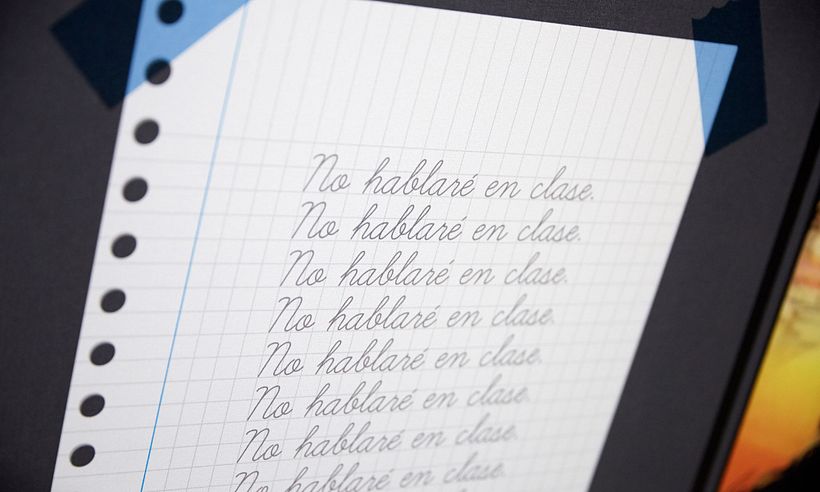 No hablaré en clase.
No hablaré en clase.
No hablaré en clase.
No hablaré en clase.
No hablaré en clase.
No hablaré en clase.
No hablaré en clase.
No hablaré en clase.